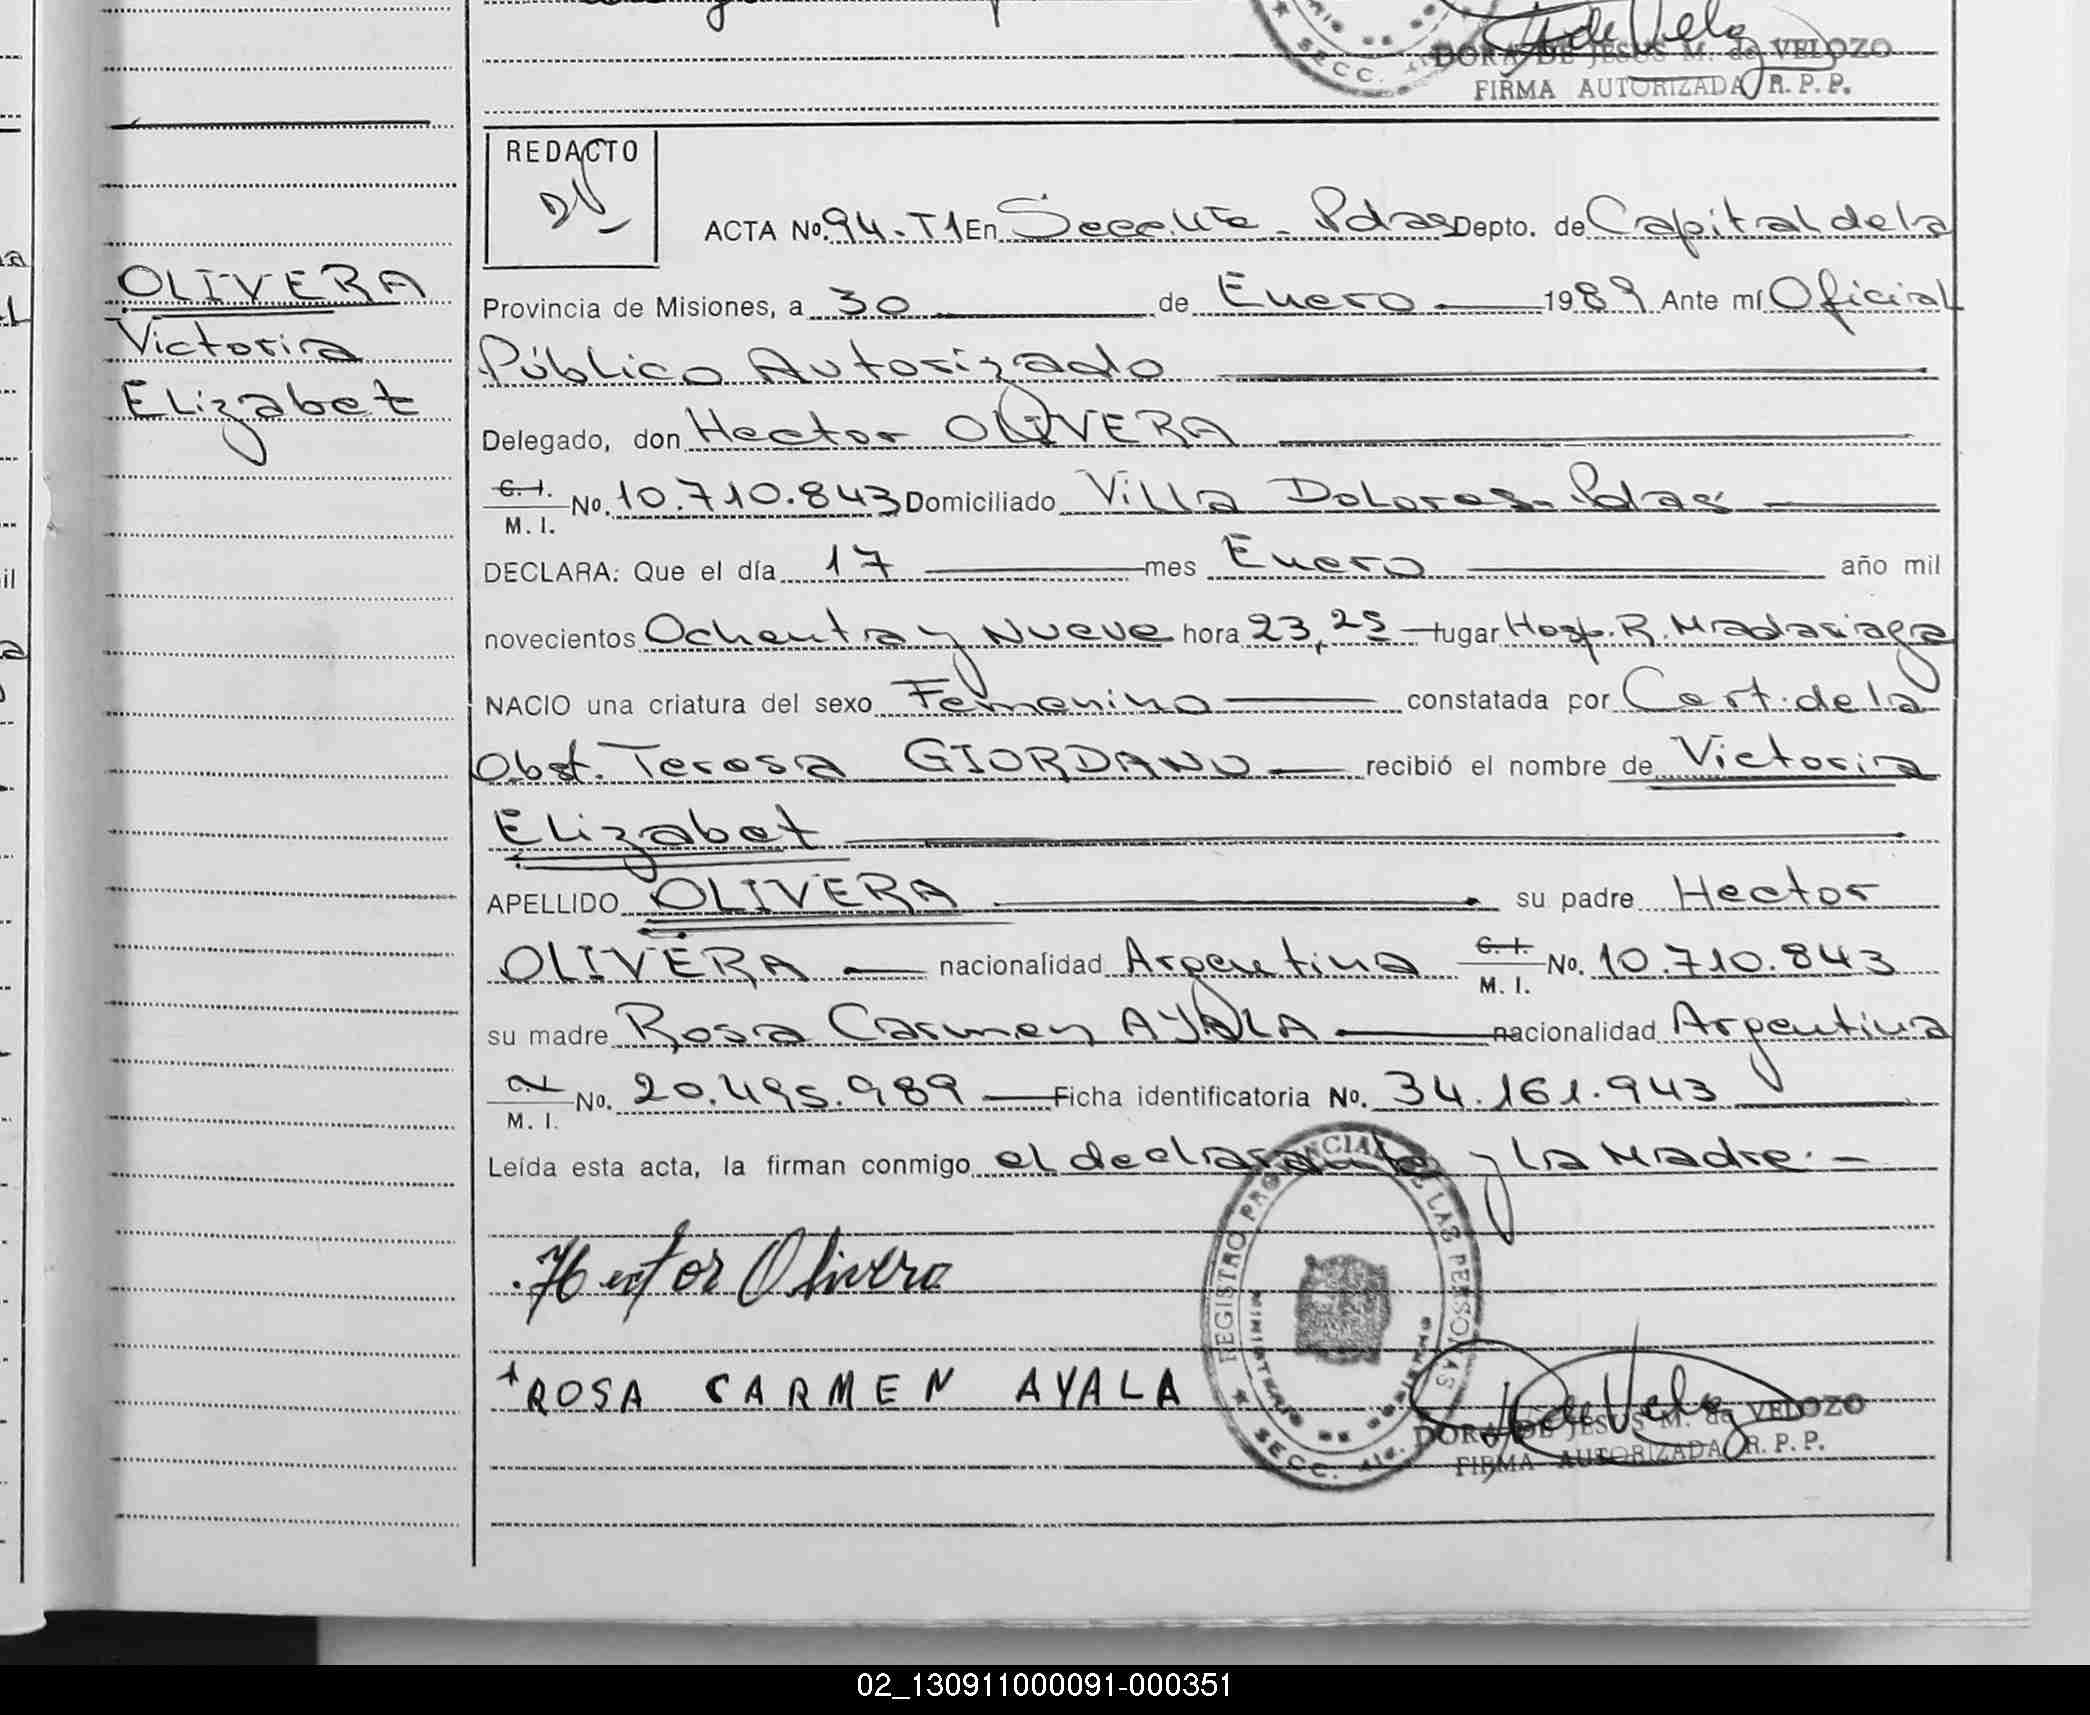 DORA DE JESUS M. de VELOZO
FIRMA AUTORIZADA R. P. P.
SECC.
REDACTO
OLIVERA
Victoria
Elizabet
ACTA No. 94-T1 En Secc. 4ta - Pdas Depto. de Capital de la
Provincia de Misiones, a 30 de Enero 1989 Ante mí Oficial
Público Autorizado
Delegado, don Hector OLIVERA
C. I.
M. I. No. 10.710.843 Domiciliado Villa Dolores - Pdas
DECLARA: Que el día 17 mes Enero año mil
novecientos Ochenta y Nueve hora 23,25 lugar Hosp. R. Madariaga
NACIO una criatura del sexo Femenino constatada por Cert. de la
Obst. Teresa GIORDANO recibió el nombre de Victoria
Elizabet
APELLIDO OLIVERA su padre Hector
OLIVERA nacionalidad Argentina C. I. M. I. No. 10.710.843
su madre Rosa Carmen AYALA nacionalidad Argentina
C.I.
M. I. No. 20.495.989 Ficha identificatoria No. 34.161.943
Leída esta acta, la firman conmigo el declarante y la Madre.-
Hector Olivera
ROSA CARMEN AYALA
REGISTRO PROVINCIAL DE LAS PERSONAS
MINISTERIO DE GOBIERNO
SECC.
DORA DE JESUS M. de VELOZO
FIRMA AUTORIZADA R. P. P.
02_130911000091-000351